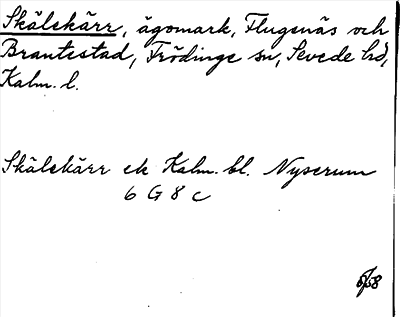 Skälskärr, ägomark, Flugenäs och
Brantestad, Frödinge sn, Sevede hd,
Kalm. l.
Skälskärr ek Kalm. bl. Nyserum
6 G 8 c